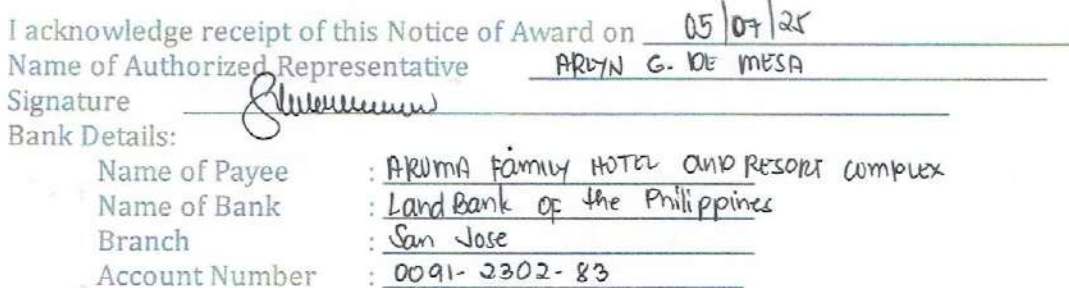 I acknowledge receipt of this Notice of Award on 05/07/25
Name of Authorized Representative ARLYN G. DE MESA
Signature
Bank Details:
Name of Payee : ARUMA FAMILY HOTEL AND RESORT COMPLEX
Name of Bank : Land Bank OF the Philippines
Branch : San Jose
Account Number : 0091-2302-83